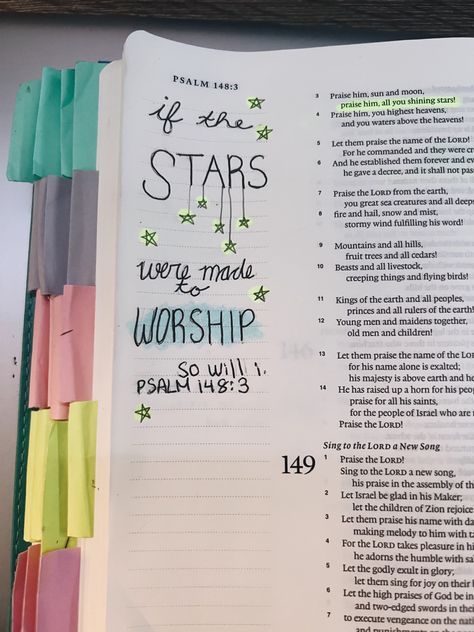 PSALM 148:3
if the
STARS
were made
to
WORSHIP
so will i.
PSALM 148:3
3 Praise him, sun and moon,
praise him, all you shining stars!
4 Praise him, you highest heavens,
and you waters above the heavens!
5 Let them praise the name of the LORD!
For he commanded and they were
6 And he established them forever and
he gave a decree, and it shall not
7 Praise the LORD from the earth,
you great sea creatures and all deeps
8 fire and hail, snow and mist,
stormy wind fulfilling his word!
9 Mountains and all hills,
fruit trees and all cedars!
10 Beasts and all livestock,
creeping things and flying birds!
11 Kings of the earth and all peoples,
princes and all rulers of the earth!
12 Young men and maidens together,
old men and children!
13 Let them praise the name of the
for his name alone is exalted;
his majesty is above earth and
14 He has raised up a horn for his
praise for all his saints,
for the people of Israel who are
Praise the LORD!
Sing to the LORD a New Song
149
1 Praise the LORD!
Sing to the LORD a new song,
his praise in the assembly of
2 Let Israel be glad in his Maker;
let the children of Zion rejoice
3 Let them praise his name with
making melody to him with
4 For the LORD takes pleasure in
he adorns the humble with
5 Let the godly exult in glory;
let them sing for joy on their
6 Let the high praises of God be
and two-edged swords in their
7 to execute vengeance on the
and punishments on the